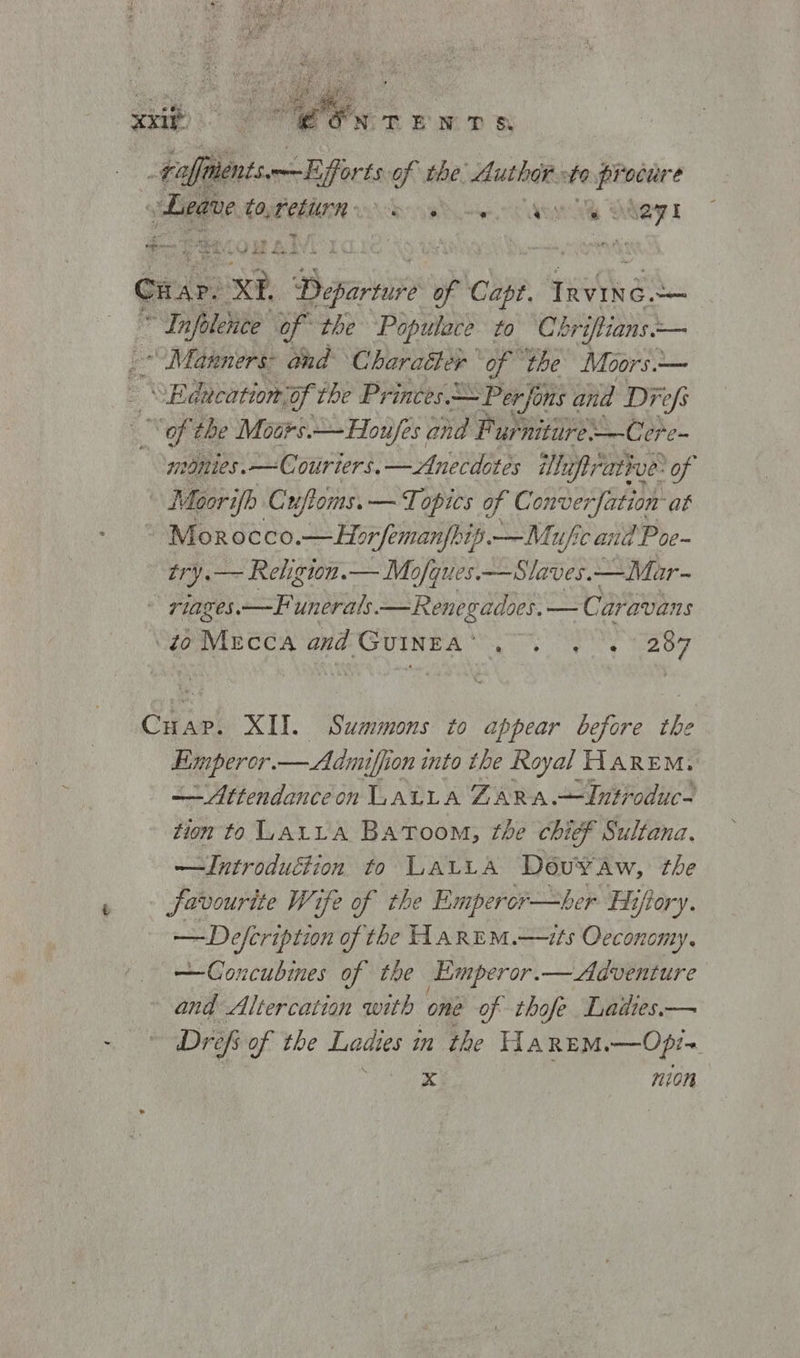 xxii CONTENTS.
raſſments.—Efforts of the Author to procure
Leave to return . . . . . . 271
CHAP. XI. Departure of Capt. IRVING.—
Inſolence of the Populace to Chriſtians.—
Manners and Character of the Moors.—
Education of the Princes.—Perſons and Dreſs
of the Moors.—Houſes and Furniture.—Cere-
monies.—Couriers.—Anecdotes illuſtrative of
Mooriſh Cuſtoms.—Topics of Converſation at
Morocco.—Horſemanſhip.—Muſic and Poe-
try.—Religion.—Moſques.—Slaves.—Mar-
riages.—Funerals.—Renegadoes.—Caravans
to MECCA and GUINEA . . . . 287
CHAP. XII. Summons to appear before the
Emperor.—Admiſſion into the Royal HAREM.
—Attendance on LALLA ZARA.—Introduc-
tion to LALLA BATOOM, the chief Sultana.
—Introduction to LALLA DOUYAW, the
favourite Wife of the Emperor—her Hiſtory.
—Deſcription of the HAREM.—its Oeconomy.
—Concubines of the Emperor.—Adventure
and Altercation with one of thoſe Ladies.—
Dreſs of the Ladies in the HAREM.—Opi-
X nion